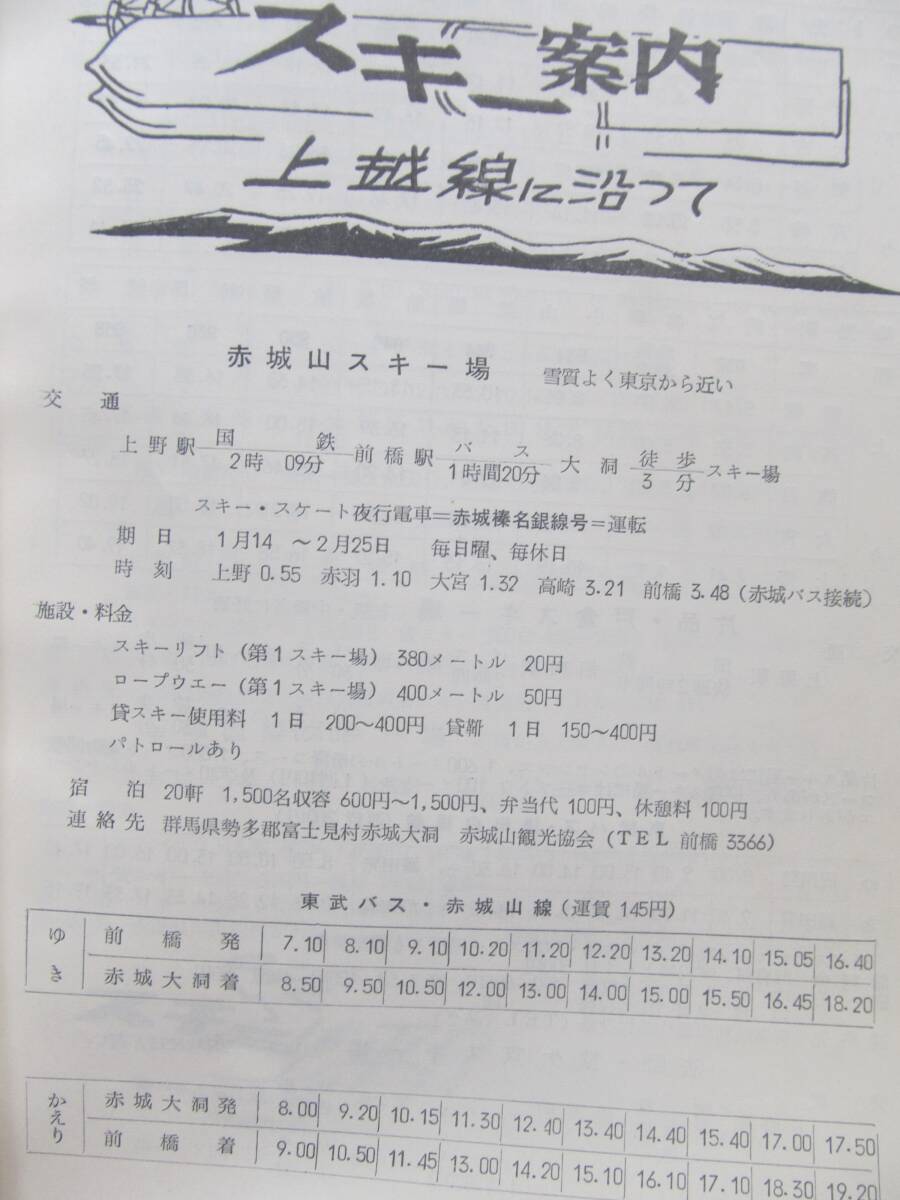 スキー案内
上越線に沿つて
赤城山スキー場 雪質よく東京から近い
交通
上野駅 国鉄 2時 09分 前橋駅 バス 1時間20分 大洞 徒歩 3分 スキー場
スキー・スケート夜行電車=赤城榛名銀線号=運転
期日 1月14 ～2月25日 毎日曜、毎休日
時刻 上野 0.55 赤羽 1.10 大宮 1.32 高崎 3.21 前橋 3.48 (赤城バス接続)
施設・料金
スキーリフト (第1スキー場) 380メートル 20円
ロープウエー (第1スキー場) 400メートル 50円
貸スキー使用料 1日 200～400円 貸靴 1日 150～400円
パトロールあり
宿泊 20軒 1,500名収容 600円～1,500円、弁当代 100円、休憩料 100円
連絡先 群馬県勢多郡富士見村赤城大洞 赤城山観光協会 (TEL 前橋 3366)
東武バス・赤城山線 (運賃 145円)
ゆき
前橋発 7.10 8.10 9.10 10.20 11.20 12.20 13.20 14.10 15.05 16.40
赤城大洞着 8.50 9.50 10.50 12.00 13.00 14.00 15.00 15.50 16.45 18.20
かえり
赤城大洞発 8.00 9.20 10.15 11.30 12.40 13.40 14.40 15.40 17.00 17.50
前橋着 9.00 10.50 11.45 13.00 14.20 15.10 16.10 17.10 18.30 19.20